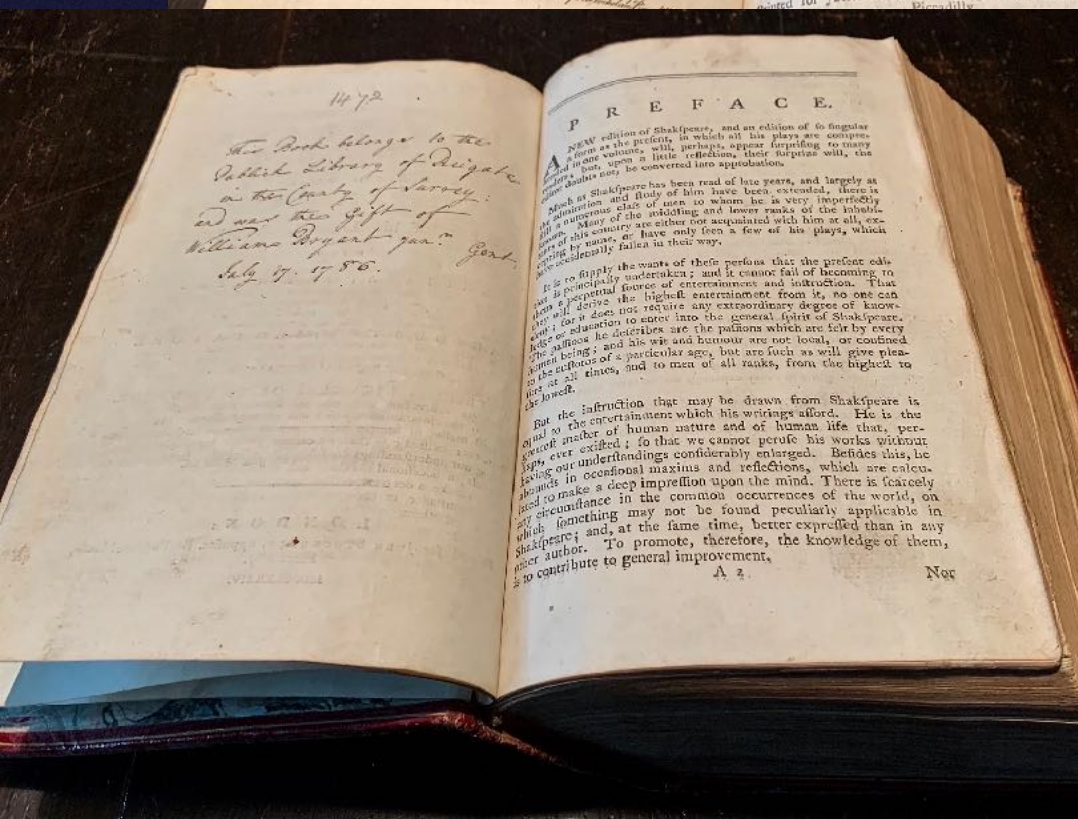 Printed for
Piccadilly
1472
This Book belongs to the
Publick Library of Reigate
in the County of Surrey:
and was the Gift of
William Bryant jun.r Gent.
July 17. 1786.
PREFACE.
A NEW edition of Shakſpeare, and an edition of ſo ſingular
a form as the preſent, in which all his plays are compre-
hended in one volume, will, perhaps, appear ſurpriſing to many
readers; but, upon a little reflection, their ſurprize will, the
editor doubts not, be converted into approbation.
Much as Shakſpeare has been read of late years, and largely as
the admiration and ſtudy of him have been extended, there is
ſtill a numerous claſs of men to whom he is very imperfectly
known. Many of the middling and lower ranks of the inhabi-
tants of this country are either not acquainted with him at all, ex-
cepting by name, or have only ſeen a few of his plays, which
have accidentally fallen in their way.
It is to ſupply the wants of theſe perſons that the preſent edi-
tion is principally undertaken; and it cannot fail of becoming to
them a perpetual ſource of entertainment and inſtruction. That
they will derive the higheſt entertainment from it, no one can
deny; for it does not require any extraordinary degree of know-
ledge or education to enter into the general ſpirit of Shakſpeare.
The paſſions he deſcribes are the paſſions which are felt by every
human being; and his wit and humour are not local, or confined
to the cuſtoms of a particular age, but are ſuch as will give plea-
ſure at all times, and to men of all ranks, from the higheſt to
the loweſt.
But the inſtruction that may be drawn from Shakſpeare is
equal to the entertainment which his writings afford. He is the
greateſt maſter of human nature and of human life that, per-
haps, ever exiſted; ſo that we cannot peruſe his works without
having our underſtandings conſiderably enlarged. Beſides this, he
abounds in occaſional maxims and reflections, which are calcu-
lated to make a deep impreſſion upon the mind. There is ſcarcely
any circumſtance in the common occurrences of the world, on
which ſomething may not be found peculiarly applicable in
Shakſpeare; and, at the ſame time, better expreſſed than in any
other author. To promote, therefore, the knowledge of them,
is to contribute to general improvement.
A 2 Nor